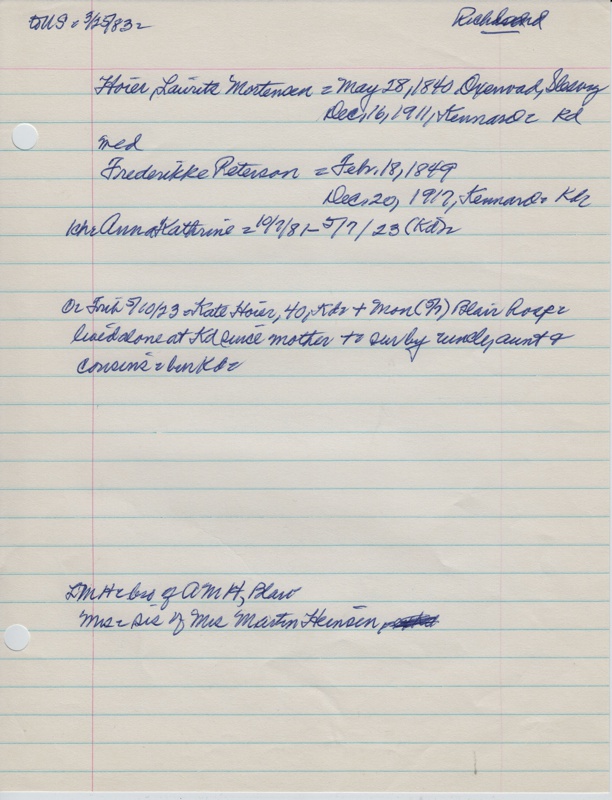 to US = 3/25/83 =
Richard
Hoier, Laurits Mortensen = May 28, 1840 Oxenvad, Slesvig
Dec, 16, 1911, Kennard = Kd
med
Frederikke Peterson = Feb. 18, 1849
Dec. 20, 1917, Kennard = Kdr
Anna Kathrine = 10/7/81 - 5/7/23 (Kd)=
5/10/23 = Kate Hoier, 40, Kdr + Mon (5/7) Blair hosp =
lived alone at Kd since mother + = sur by uncle, aunt &
cousins = bur Kd =
LMH = bro of AMH, Blair
Mrs = sis of Mrs Martin Heinsen,